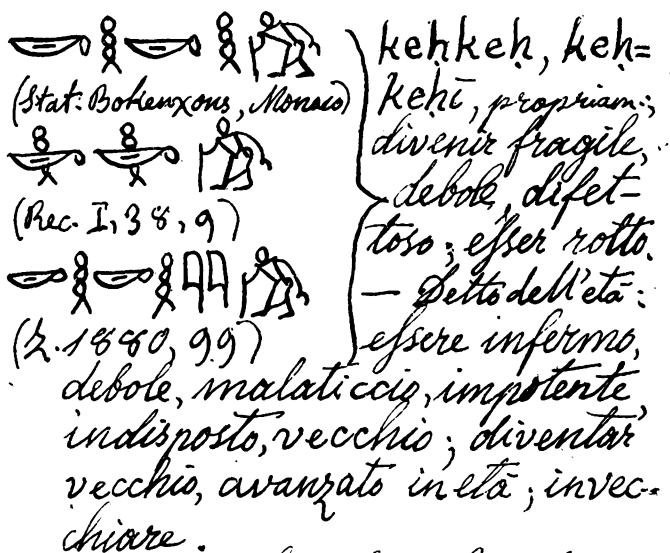 𓎡𓎛𓎡𓎛𓀗
(Stat: Bokenxons, Monaco)
𓎡𓎛𓎡𓎛𓀗
(Rec. I, 38, 9)
𓎡𓎛𓎡𓎛𓇌𓀗
(Z. 1880, 99)
keḥkeḥ, keḥ=
keḥī, propriam:,
divenir fragile,
debole, difet-
toso; eſser rotto.
— Detto dell'età:
eſsere infermo,
debole, malaticcio, impotente,
indisposto, vecchio; diventar
vecchio, avanzato in età; invec-
chiare.